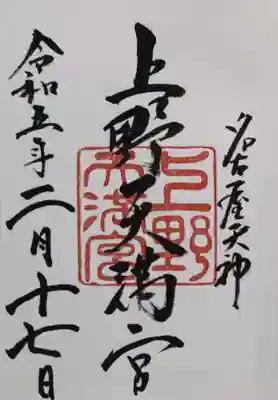 名古屋天神
上野天満宮
上野
天満宮
令和五年二月十七日